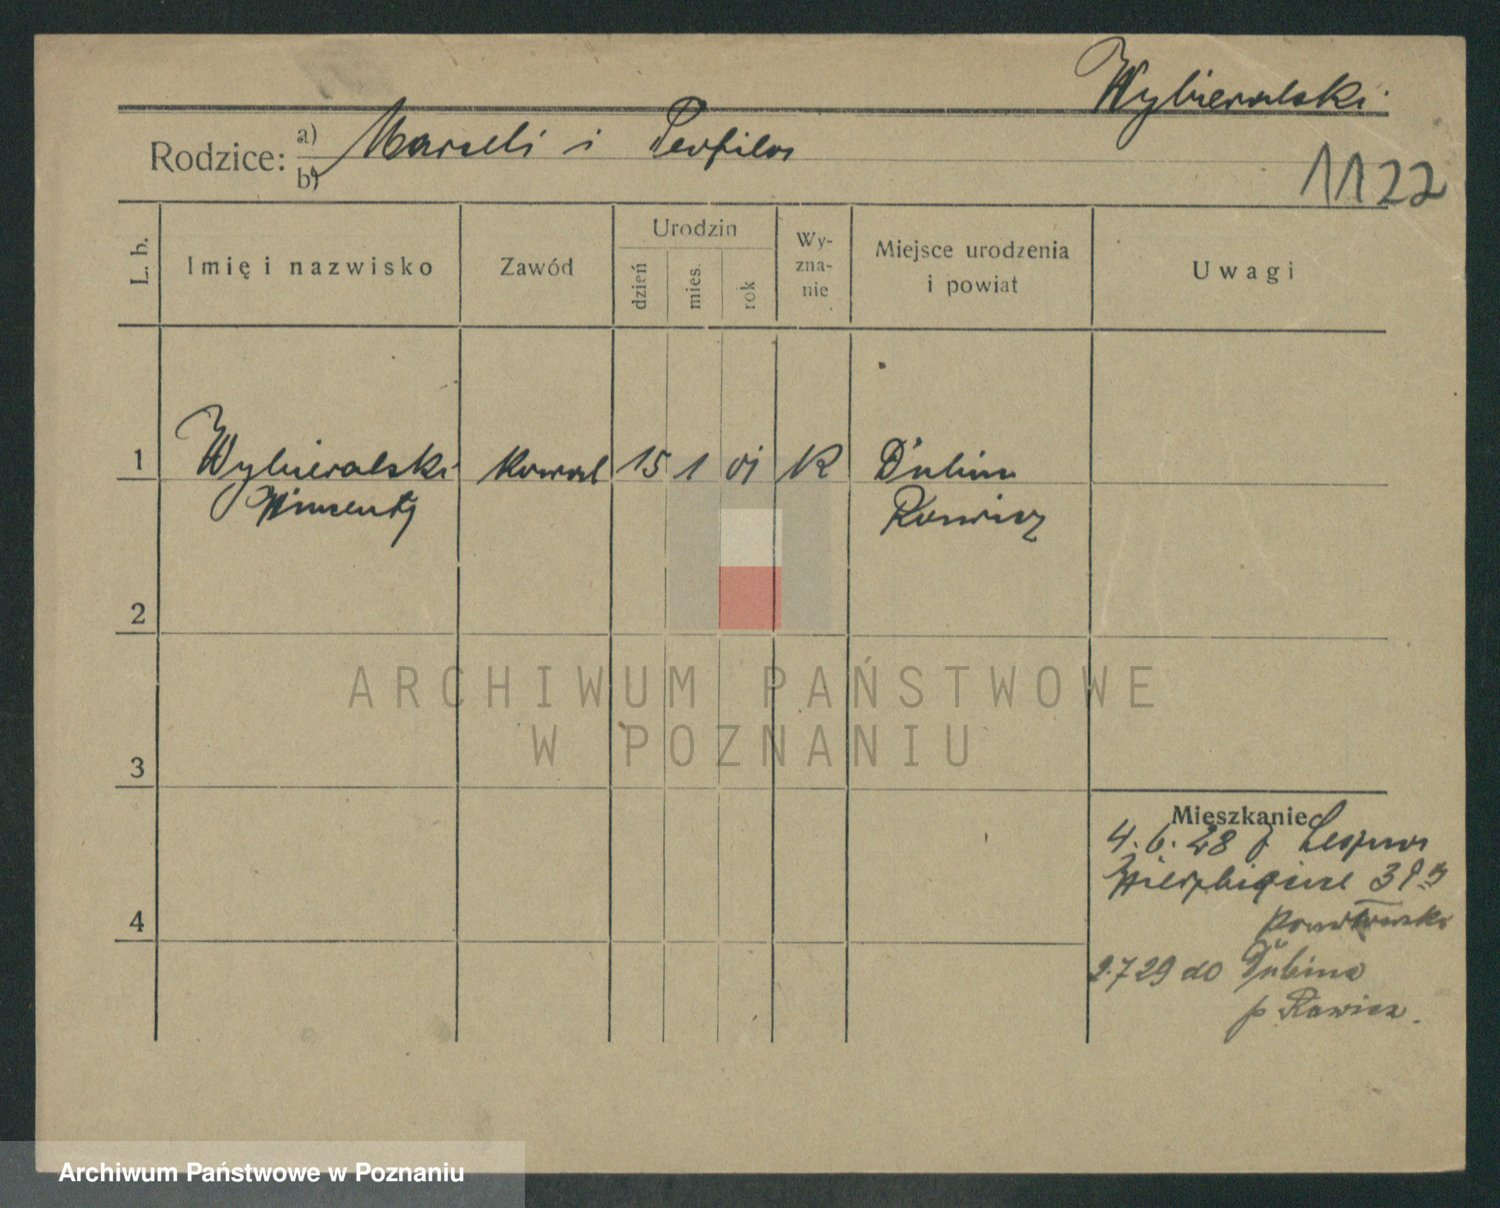 Wybieralski
Rodzice: a) Marceli i Teofila
b)
1122
L. b.
Imię i nazwisko
Zawód
Urodzin
dzień
mies.
rok
Wy-
zna-
nie
Miejsce urodzenia
i powiat
Uwagi
1 Wybieralski Kowal 15 1 01 K Dubin
Wincenty Rawicz
2
3
4
Mieszkanie
4.6.28 z
Wierzbięcice
2.7 29 do Dubina
p Rawicz.
ARCHIWUM PAŃSTWOWE
W POZNANIU
Archiwum Państwowe w Poznaniu